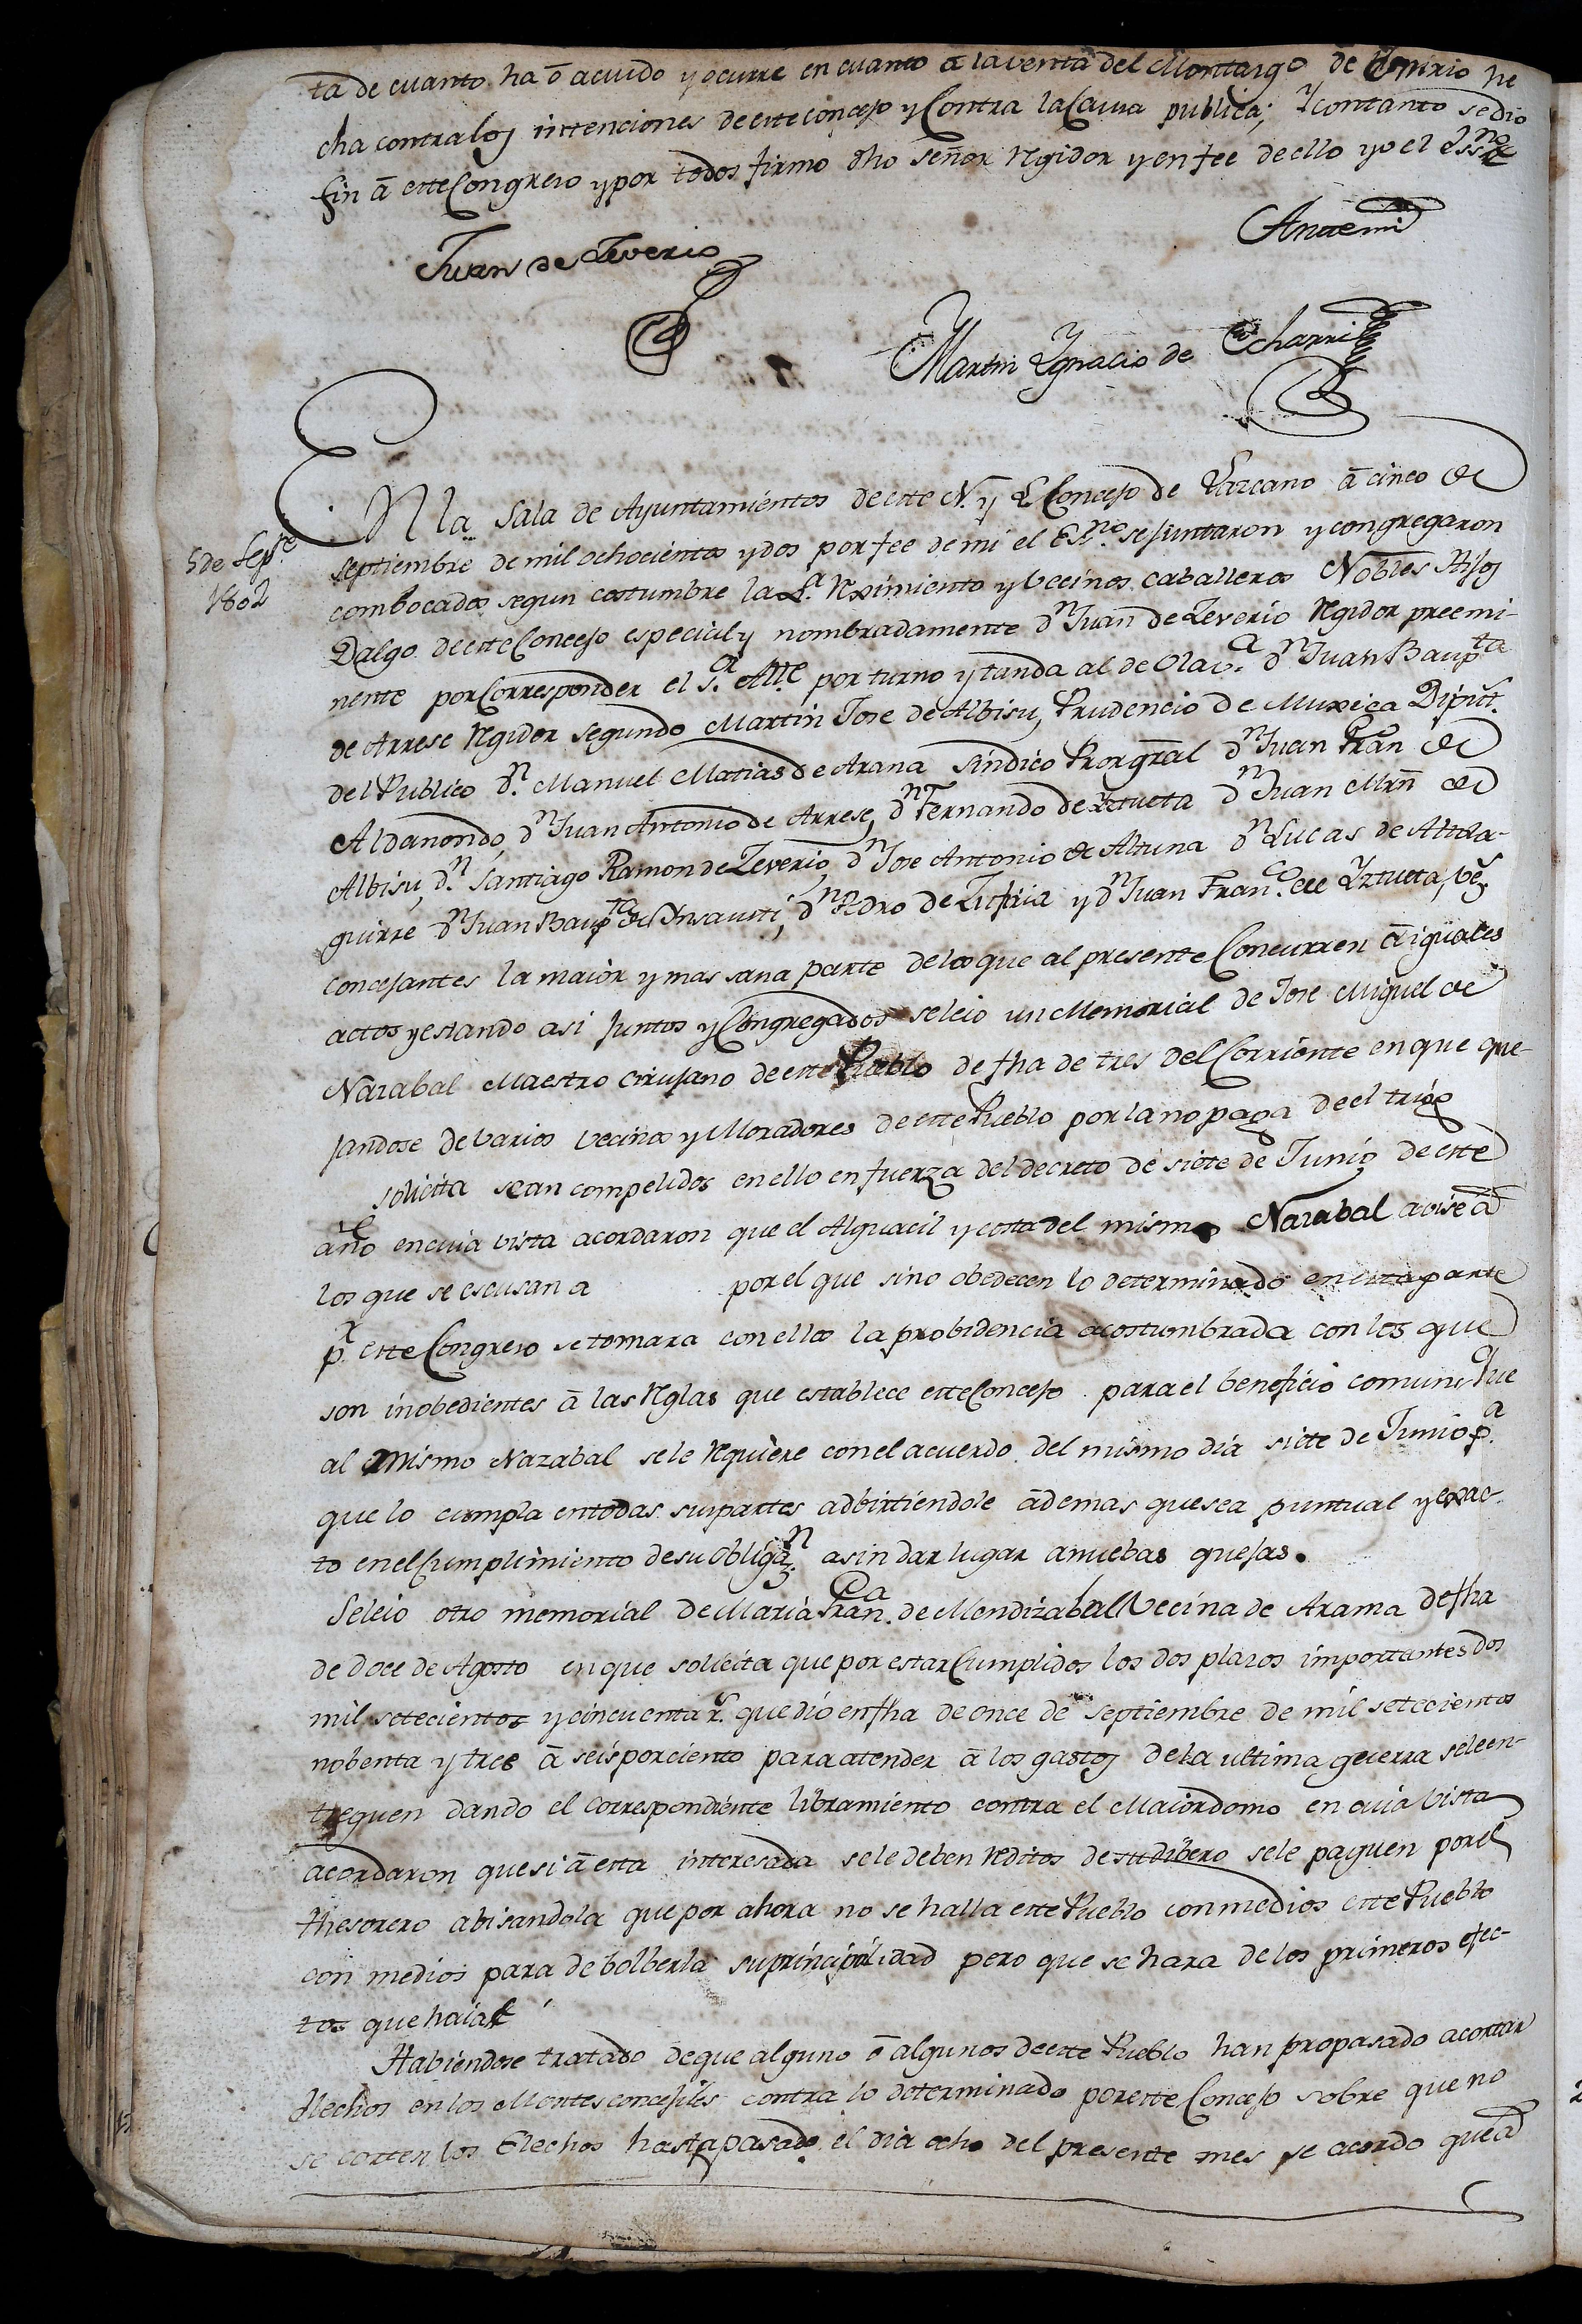 ta de cuanto ha ō acuido y ocurre en cuanto ā la venta del Montazgo de he
cha contra los intenciones de este concejo y Contra la Causa publica; Y con tanto se dio
fin ā este Congreso y por todos firmo dho señor Rgidor y en fee de ello yo el Essno
Ante mi
Juan de Zeverio
Martin Ygnacio de Echarri
5 de Sepre
1802
EN la Sala de Ayuntamientos de este N. y L. Concejo de Lazcano ā cinco de
septiembre de mil ochocientos y dos por fee de mi el Esno. se juntaron y congregaron
combocados segun costumbre la Sa. Reximiento y Vecinos caballeros Nobles Hijos
Dalgo de este Concejo especial y nombradamente dn Juan de Zeverio Rgidor preemi-
nente por Corresponder el sr. Alle por turno y tanda al de Olava. dn Juan Baupta
de Arrese Rgidor segundo Martin Jose de Albisu, Prudencio de Muxica Diput.
del Publico dn. Manuel Matias de Arana Sindico Pror gral dn Juan Fran de
Aldanondo, dn Juan Antonio de Arrese, dn Fernando de Yztueta dn Juan Mrn de
Albisu, dn. Santiago Ramon de Zeverio, dn Jose Antonio de Altuna dn Lucas de Altola-
guirre dn Juan Baupta de Ynsausti, dn Pedro de y dn Juan Franco. de Yztueta, vs
concejantes la maior y mas sana parte de los que al presente Concurren ā iguales
actos y estando asi Juntos y Congregados se leio un Memorial de Jose Miguel de
Nazabal Maestro Cirujano de este Pueblo de fha de tres del Corriente en que que-
jandose de varios vecinos y Moradores de este Pueblo por la no paga de el trigo
solicita sean compelidos en ello en fuerza del decreto de siete de Junio de este
año en cuia vista acordaron que el Alguacil y costa del mismo Nazabal avise ā
los que se escusan a por el que sino obedecen lo determinado en esta parte
pr. este Congreso se tomara con ellos la probidencia acostumbrada con los que
son inobedientes ā las Rglas que establece este Concejo para el beneficio comun: Que
al mismo Nazabal se le Rquiere con el acuerdo del mismo dia siete de Junio pa.
que lo cumpla en todas su partes adbirtiendole ademas que sea puntual y exac-
to en el Cumplimiento de su Obligazn. a sin dar lugar a nuebas quejas.
Se leio otro memorial de Maria Franca. de Mendizabal Vecina de Arama de fha
de doce de Agosto en que solicita que por estar Cumplidos los dos plazos importantes dos
mil setecientos y cincuenta rs. que dio en fha de once de Septiembre de mil setecientos
nobenta y tres ā seis por ciento para atender ā los gastos de la ultima guerra se le en-
treguen dando el correspondiente libramiento contra el Maiordomo en cuia vista
acordaron que si ā esta interesada se le deben Reditos de su dinero se le paguen por el
thesorero abisandola que por ahora no se halla este Pueblo con medios este Pueblo
con medios para debolberla su principalidad pero que se hara de los primeros efec-
tos que haia
Habiendose tratado de que alguno ō algunos de este Pueblo han propasado a cortar
Elechos en los Montes concejiles contra lo determinado por este Concejo sobre que no
se corten los Elechos hasta pasado el dia ocho del presente mes se acordo que ā